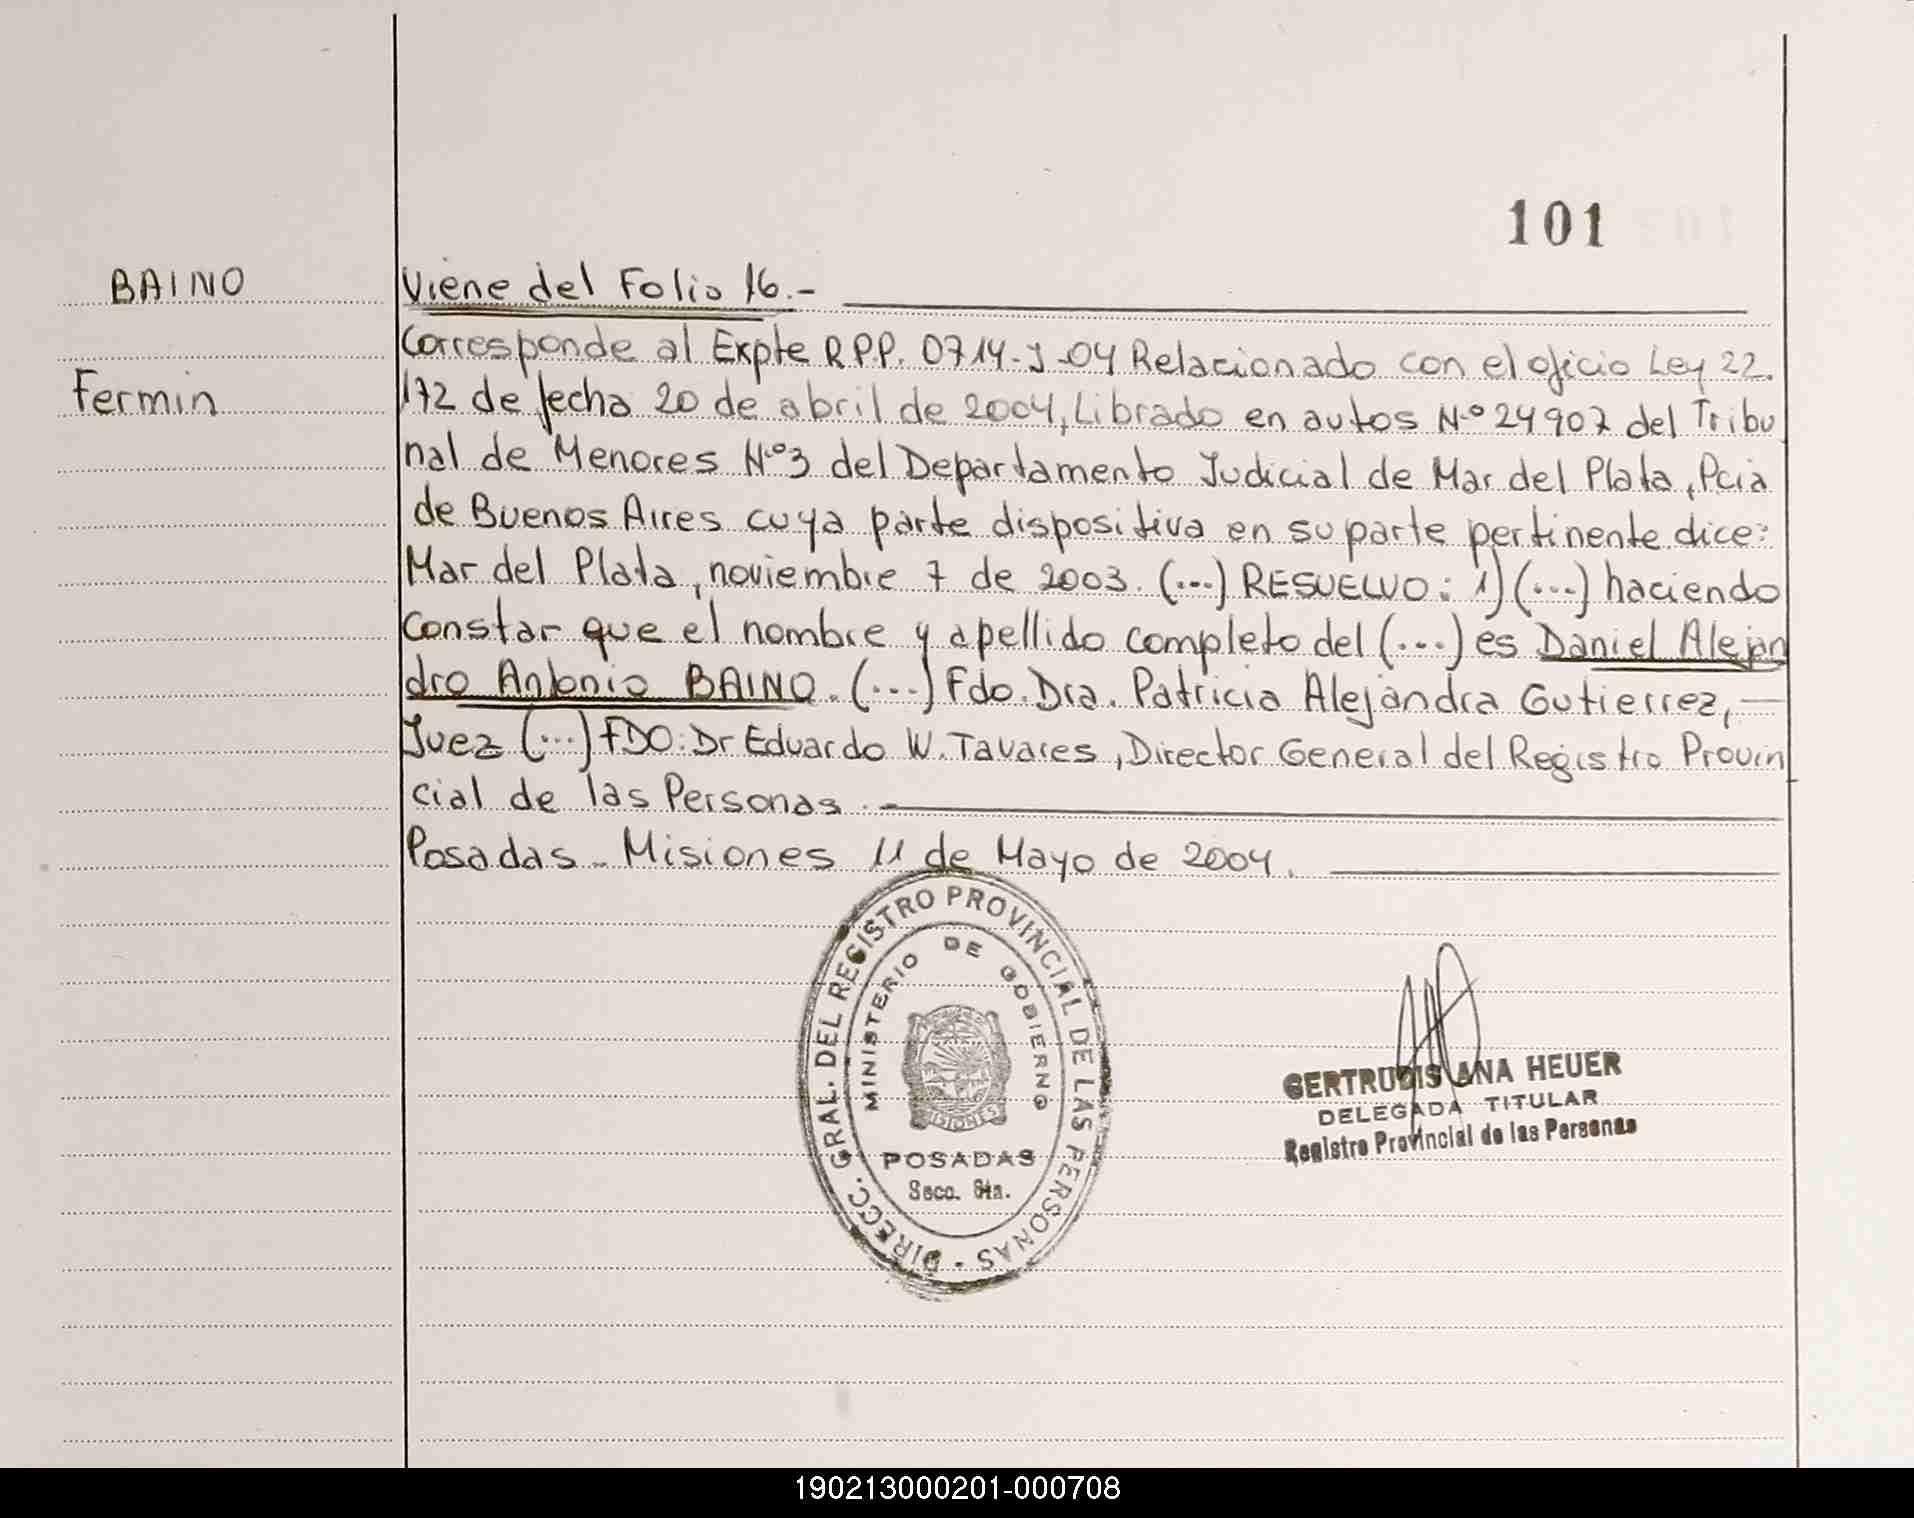 101
BAINO
Viene del Folio 16.-
Corresponde al Expte R.P.P. 0714-J-04 Relacionado con el oficio Ley 22.
Fermin
172 de fecha 20 de abril de 2004, Librado en autos Nº 24907 del Tribu
nal de Menores Nº3 del Departamento Judicial de Mar del Plata, Pcia
de Buenos Aires cuya parte dispositiva en su parte pertinente dice:
Mar del Plata, noviembre 7 de 2003. (...) RESUELVO: 1) (...) haciendo
constar que el nombre y apellido completo del (...) es Daniel Alejan
dro Antonio BAINO. (...) Fdo. Dra. Patricia Alejandra Gutierrez, —
Juez (...) FDO: Dr Eduardo W. Tavares, Director General del Registro Provin
cial de las Personas.-
Posadas - Misiones 11 de Mayo de 2004.
DIRECC. GRAL. DEL REGISTRO PROVINCIAL DE LAS PERSONAS -
MINISTERIO DE GOBIERNO
MISIONES
POSADAS
Secc. 6ta.
GERTRUDIS ANA HEUER
DELEGADA TITULAR
Registro Provincial de las Personas
190213000201-000708